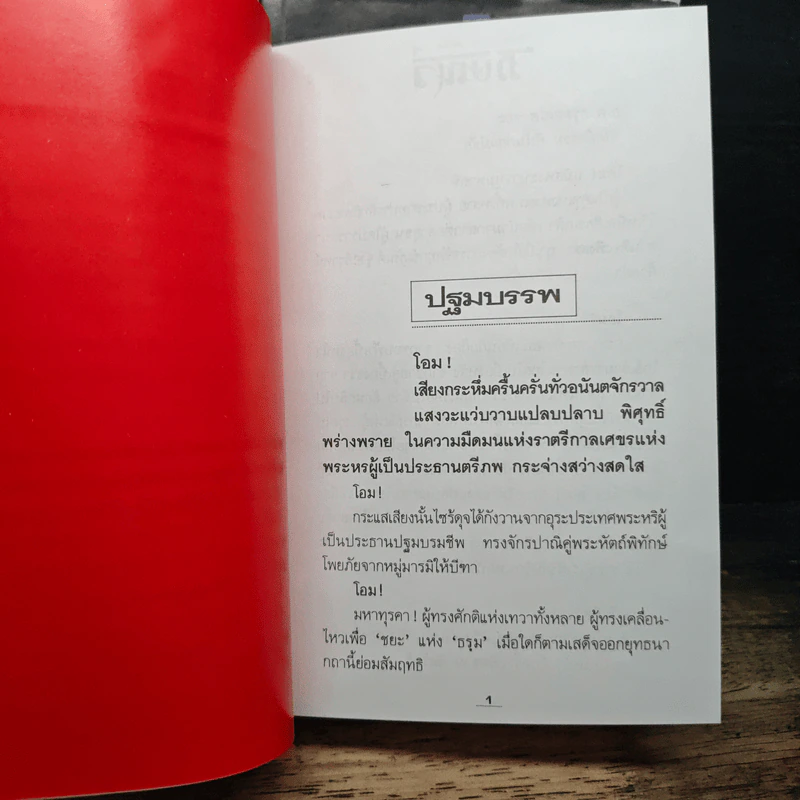 ปฐมบรรพ
โอม !
เสียงกระหึ่มครื้นครั่นทั่วอนันตจักรวาล
แสงวะแว่บวาบแปลบปลาบ พิศุทธิ์
พร่างพราย ในความมืดมนแห่งราตรีกาลเศขรแห่ง
พระหรผู้เป็นประธานตรีภพ กระจ่างสว่างสดใส
โอม !
กระแสเสียงนั้นไซร้ดุจได้กังวานจากอุระประเทศพระหริผู้
เป็นประธานปฐมบรมชีพ ทรงจักรปาณิคู่พระหัตถ์พิทักษ์
โพยภัยจากหมู่มารมิให้บีฑา
โอม !
มหาทุรคา ! ผู้ทรงศักติแห่งเทวาทั้งหลาย ผู้ทรงเคลื่อน-
ไหวเพื่อ ‘ชยะ’ แห่ง ‘ธรุม’ เมื่อใดก็ตามเสด็จออกยุทธนา
กถานี้ย่อมสัมฤทธิ
1